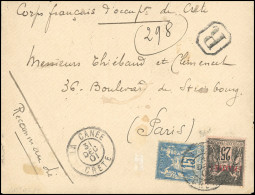 Corps français d'occupt de Crète
298
R
Messieurs Thibaud et Clement
36. Boulevard de Strasbourg
(Paris)
Recommandé
LA CANÉE
CRÈTE
15
25